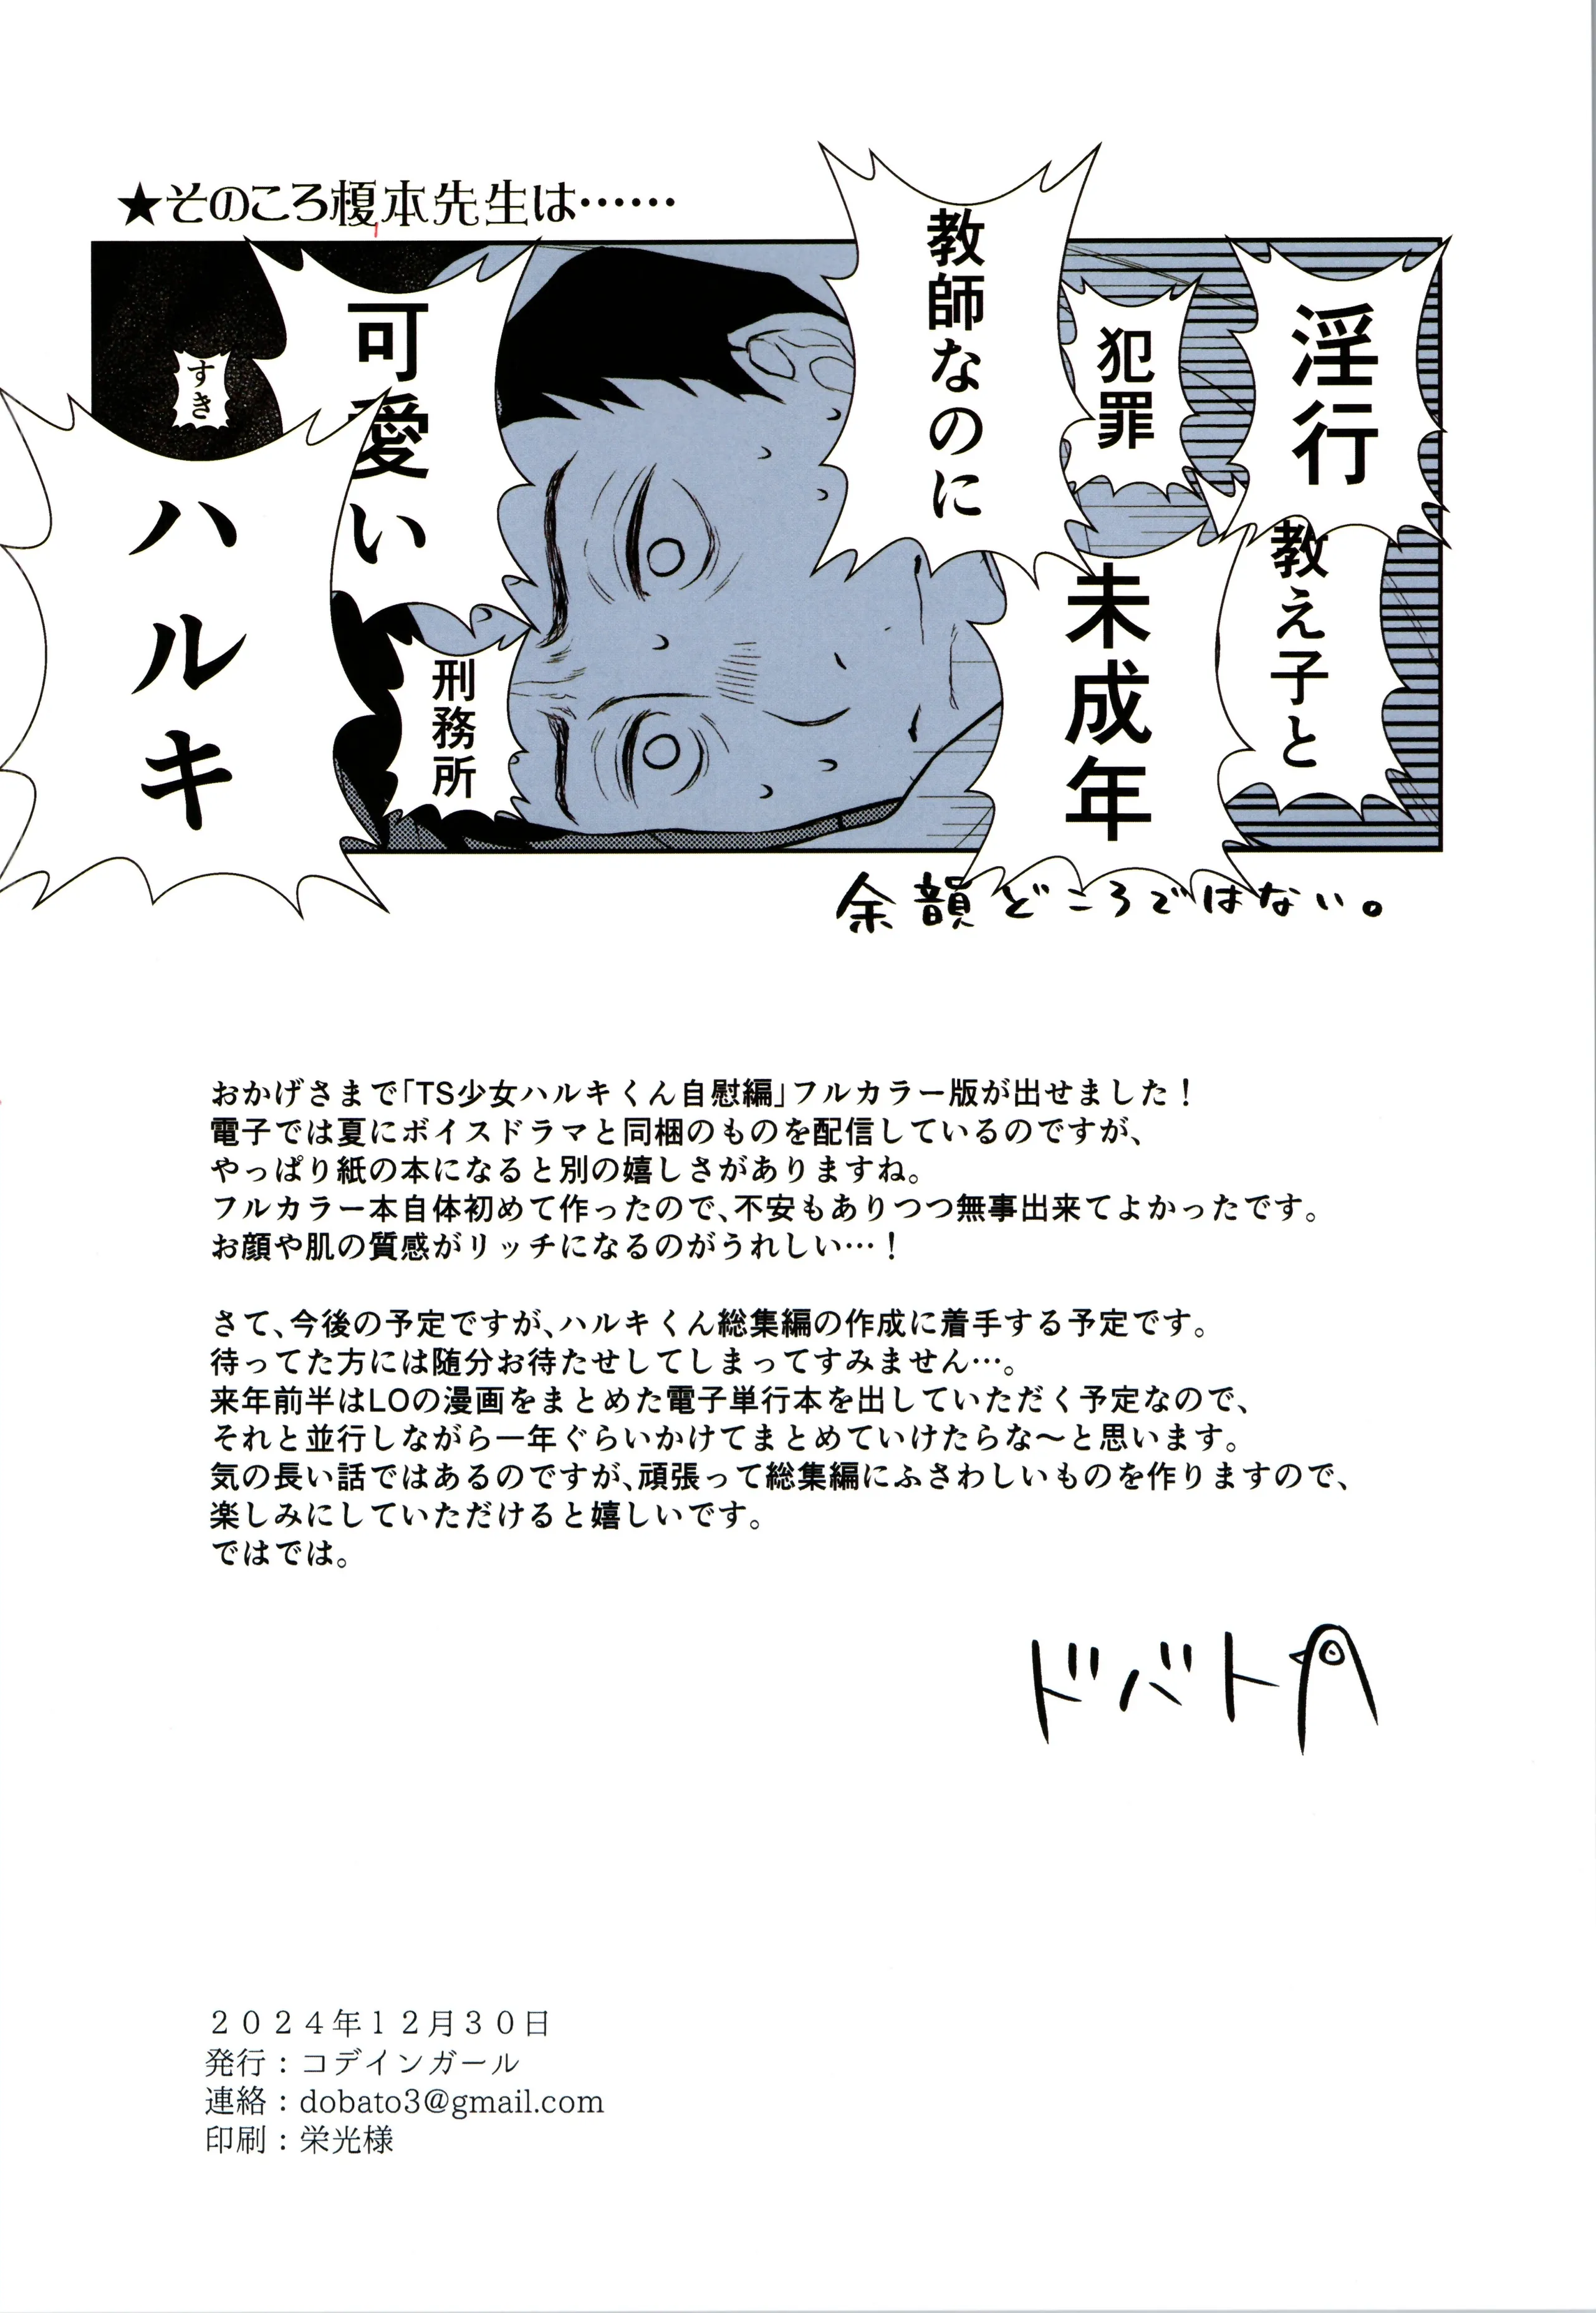 ★そのころ榎本先生は……
淫行
教え子と
犯罪
未成年
教師なのに
可愛い
刑務所
すき
ハルキ
余韻どころではない。
おかげさまで「TS少女ハルキくん自慰編」フルカラー版が出せました！
電子では夏にボイスドラマと同梱のものを配信しているのですが、
やっぱり紙の本になると別の嬉しさがありますね。
フルカラー本自体初めて作ったので、不安もありつつ無事出来てよかったです。
お顔や肌の質感がリッチになるのがうれしい…！
さて、今後の予定ですが、ハルキくん総集編の作成に着手する予定です。
待ってた方には随分お待たせしてしまってすみません…。
来年前半はLOの漫画をまとめた電子単行本を出していただく予定なので、
それと並行しながら一年ぐらいかけてまとめていけたらな～と思います。
気の長い話ではあるのですが、頑張って総集編にふさわしいものを作りますので、
楽しみにしていただけると嬉しいです。
ではでは。
ドバト
２０２４年１２月３０日
発行：コデインガール
連絡：dobato3@gmail.com
印刷：栄光様